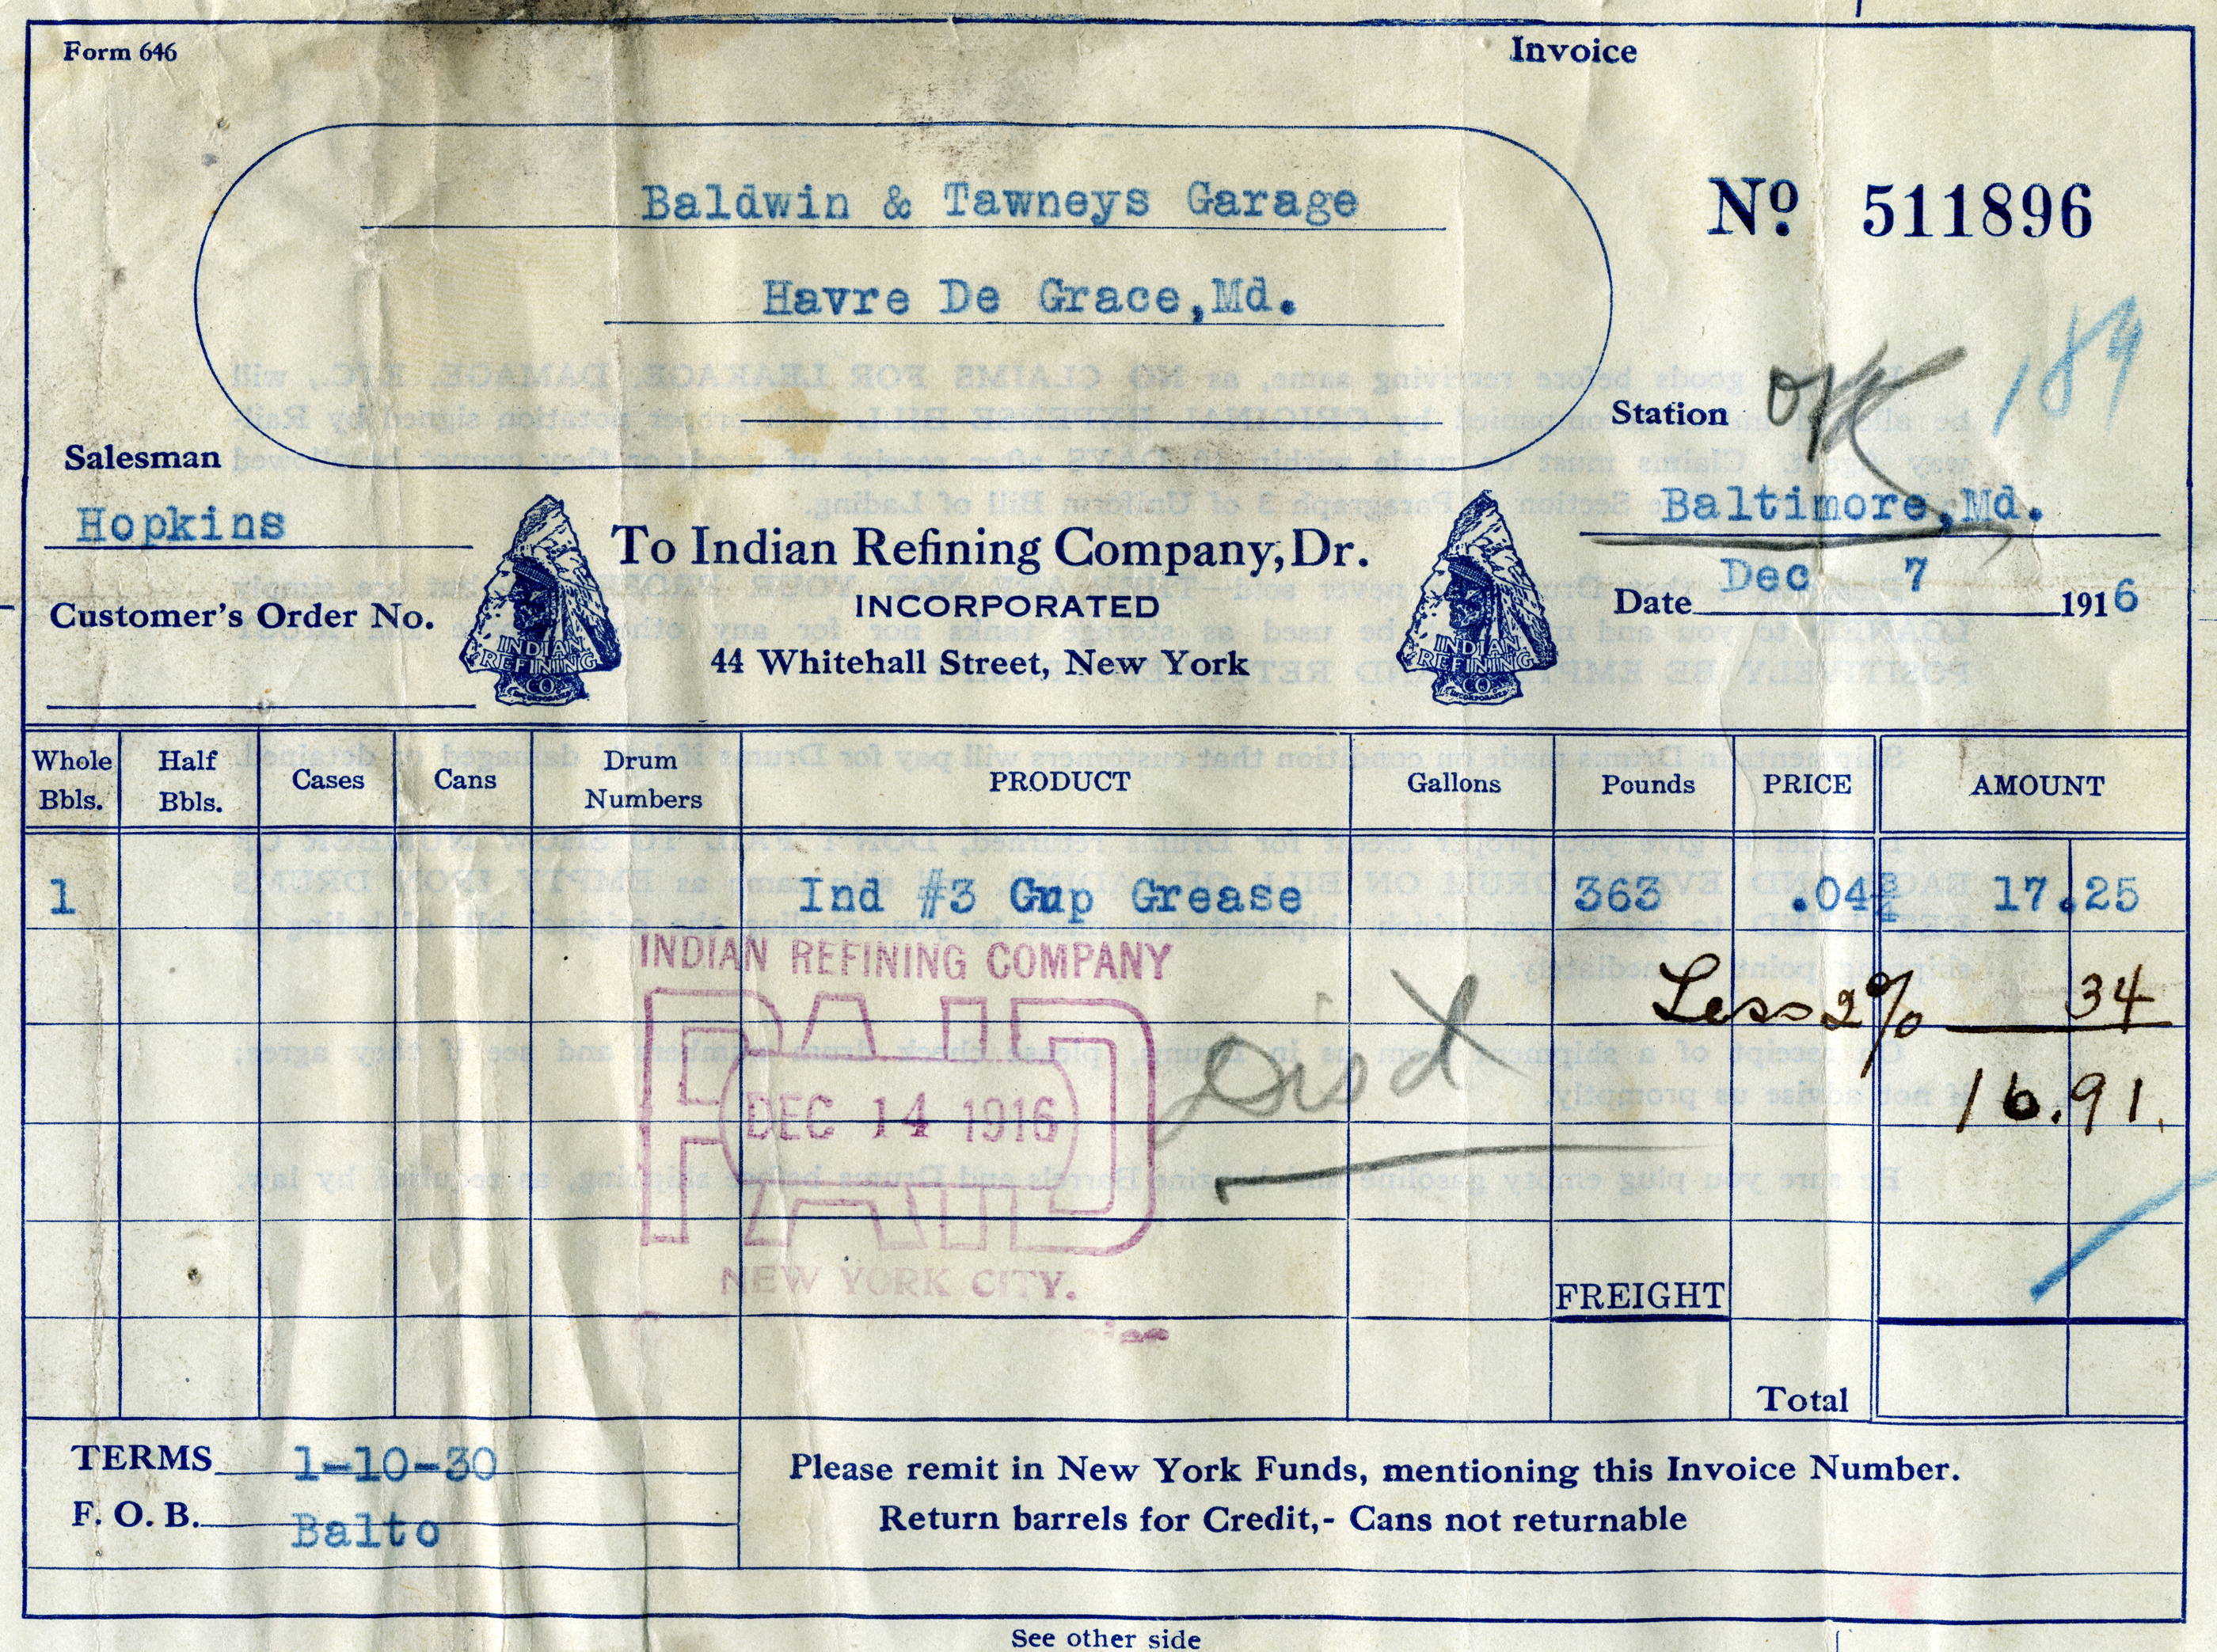 Form 646
Invoice
Baldwin & Tawneys Garage
Havre De Grace,Md.
Nº 511896
189
OK
Station
Baltimore,Md.
Salesman
Hopkins
Customer's Order No.
INDIAN
REFINING
CO
INCORPORATED
To Indian Refining Company, Dr.
INCORPORATED
44 Whitehall Street, New York
INDIAN
REFINING
CO
INCORPORATED
Date Dec 7 1916
Whole Bbls. Half Bbls. Cases Cans Drum Numbers PRODUCT Gallons Pounds PRICE AMOUNT
1 Ind #3 Cup Grease 363 .04¾ 17.25
Less 2% 34
16.91.
INDIAN REFINING COMPANY
PAID
DEC 14 1916
NEW YORK CITY.
FREIGHT
Total
TERMS 1-10-30
F. O. B. Balto
Please remit in New York Funds, mentioning this Invoice Number.
Return barrels for Credit,- Cans not returnable
See other side